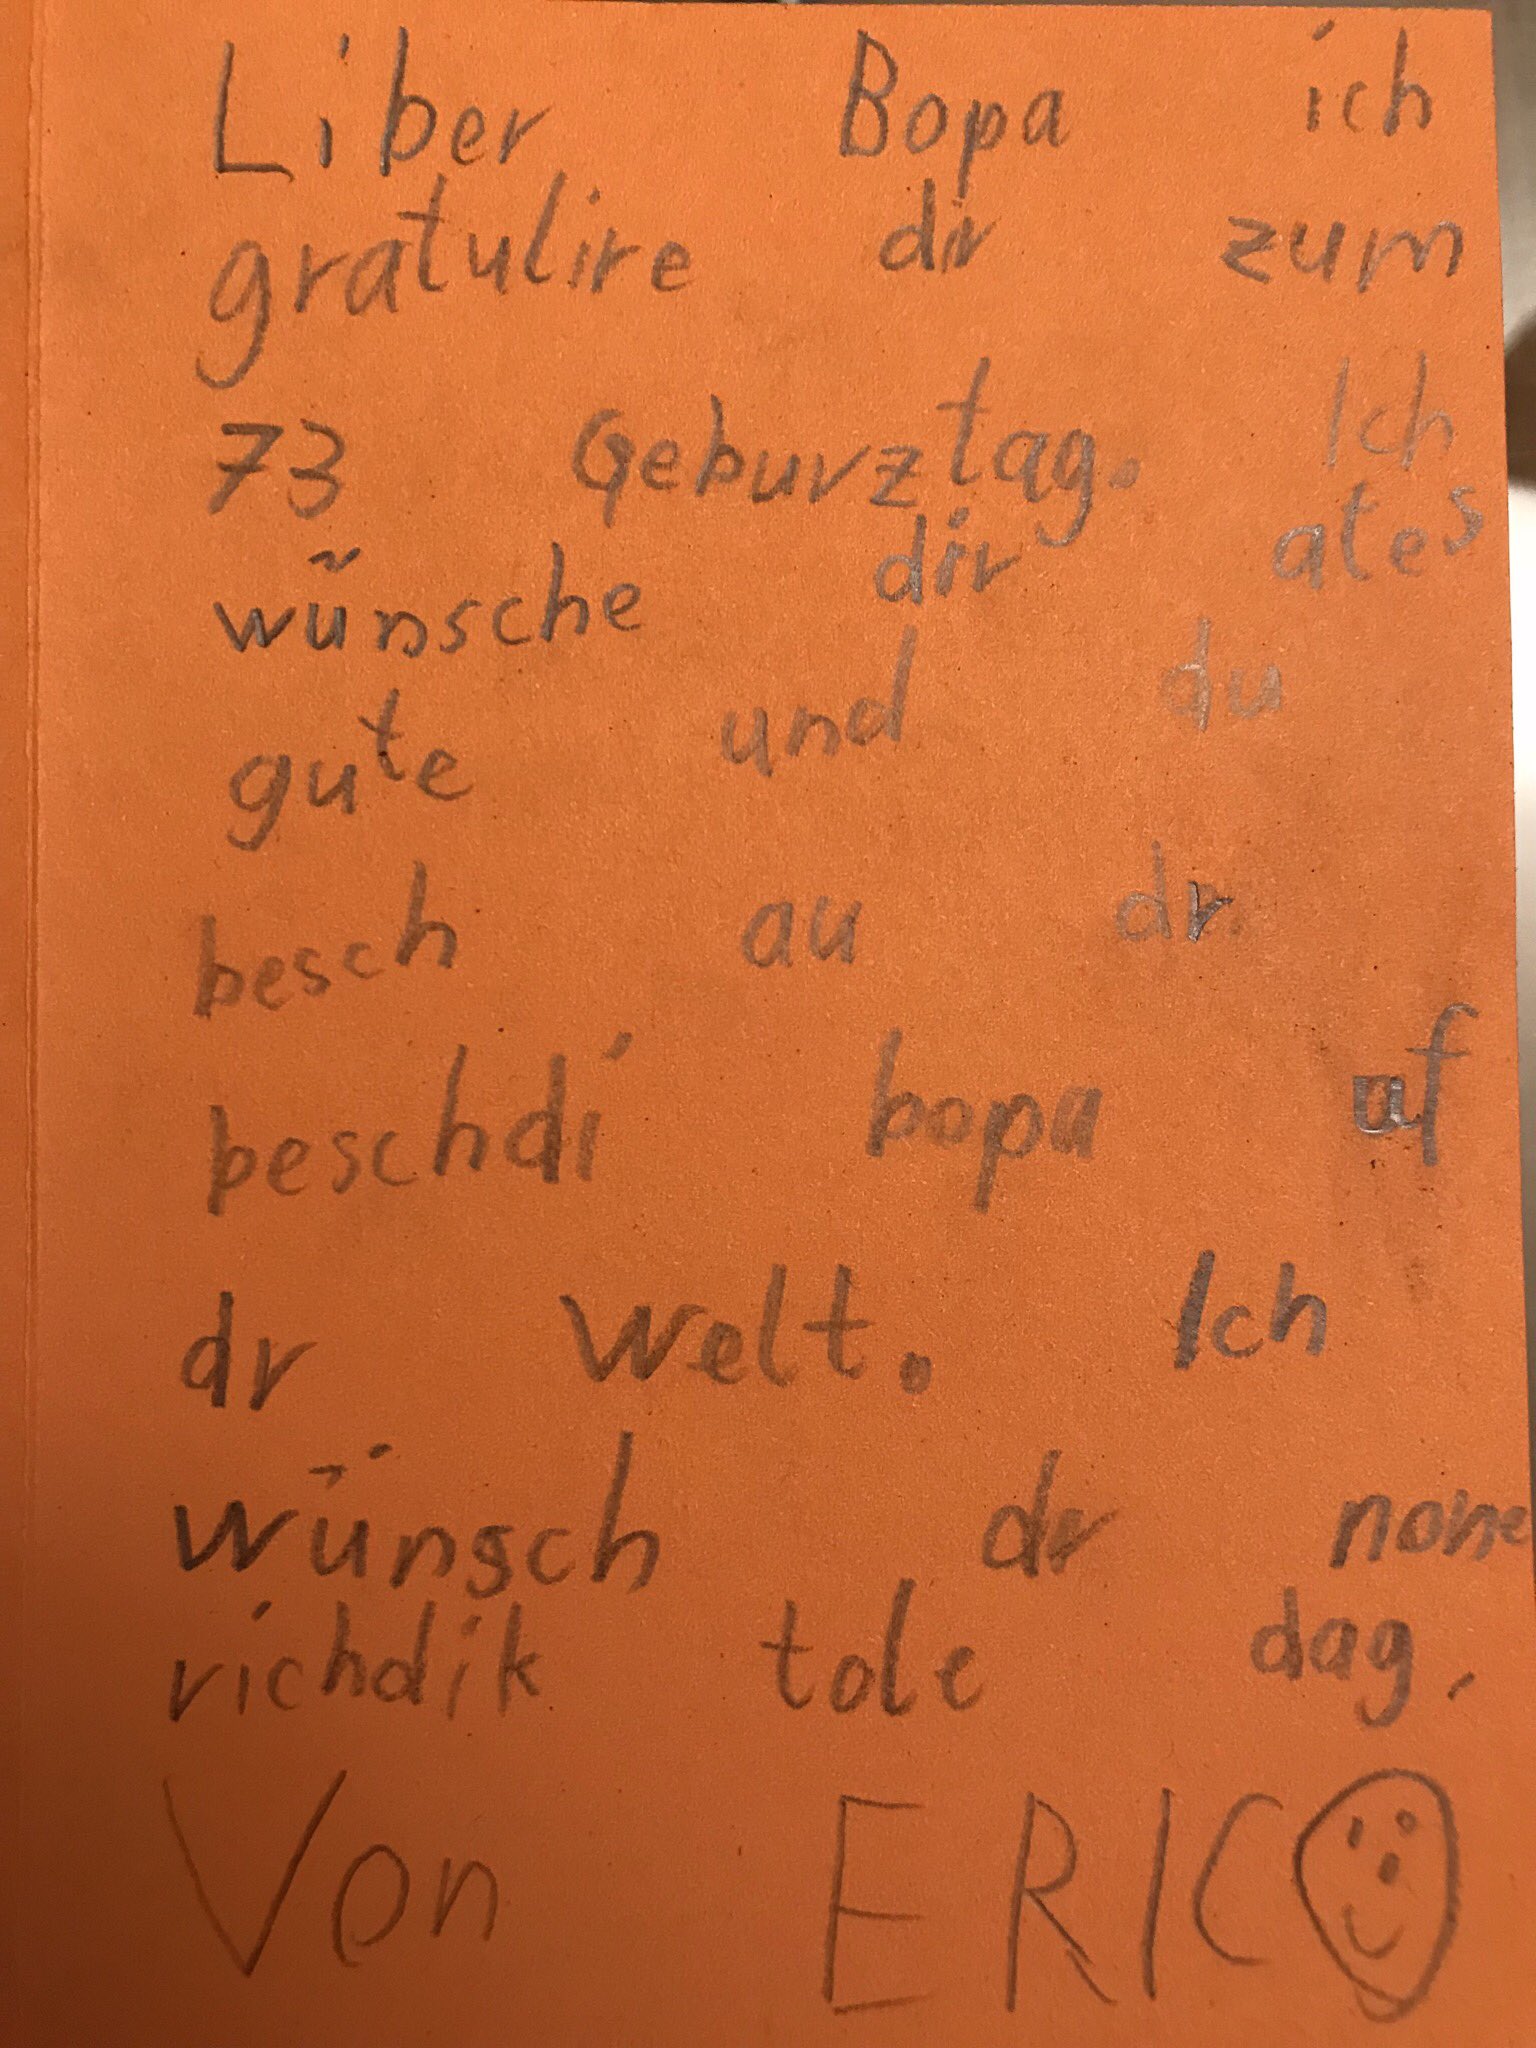 Liber Bopa ich
gratulire dir zum
73 Geburztag. Ich
wünsche dir ates
gute und du
besch au dr
beschdi bopa uf
dr welt. Ich
wünsch dr none
richdik tole dag,
Von ERICO